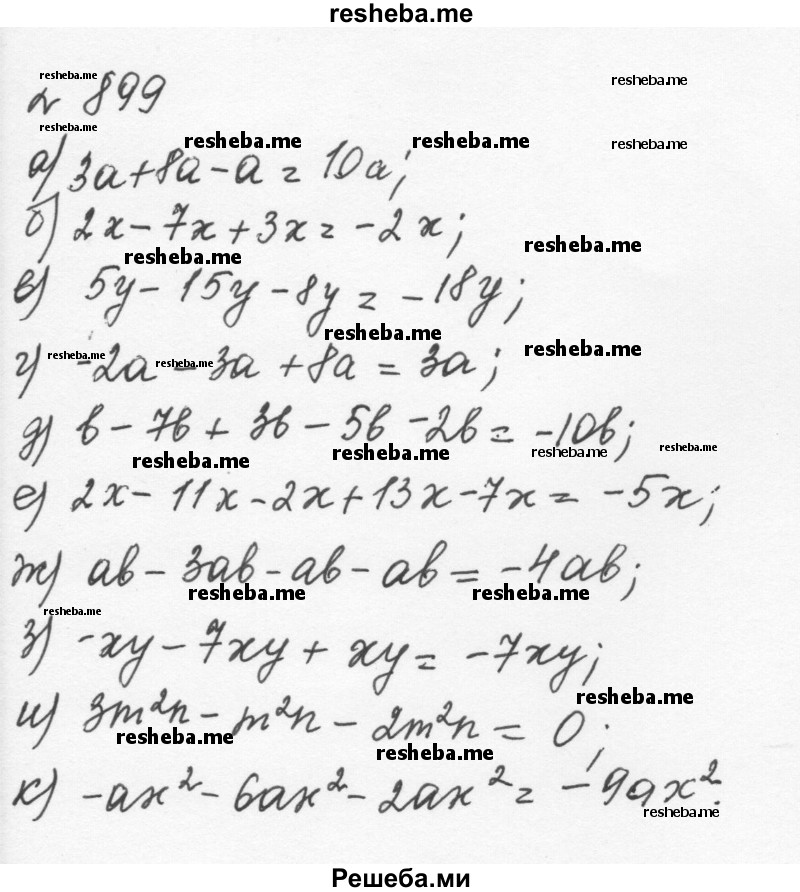 resheba.me
resheba.me
№ 899
resheba.me
resheba.me
resheba.me resheba.me resheba.me
а) 3a+8a-a=10a;
б) 2x-7x+3x=-2x;
resheba.me
resheba.me
в) 5y-15y-8y=-18y;
resheba.me
resheba.me resheba.me resheba.me
г) -2a-3a+8a=3a;
д) b-7b+3b-5b-2b=-10b;
resheba.me resheba.me resheba.me resheba.me
е) 2x-11x-2x+13x-7x=-5x;
ж) ab-3ab-ab-ab=-4ab;
resheba.me resheba.me
resheba.me
з) -xy-7xy+xy=-7xy;
resheba.me
и) 3m²n-m²n-2m²n=0;
resheba.me
resheba.me
к) -ax²-6ax²-2ax²=-9ax².
resheba.me
Решеба.ми